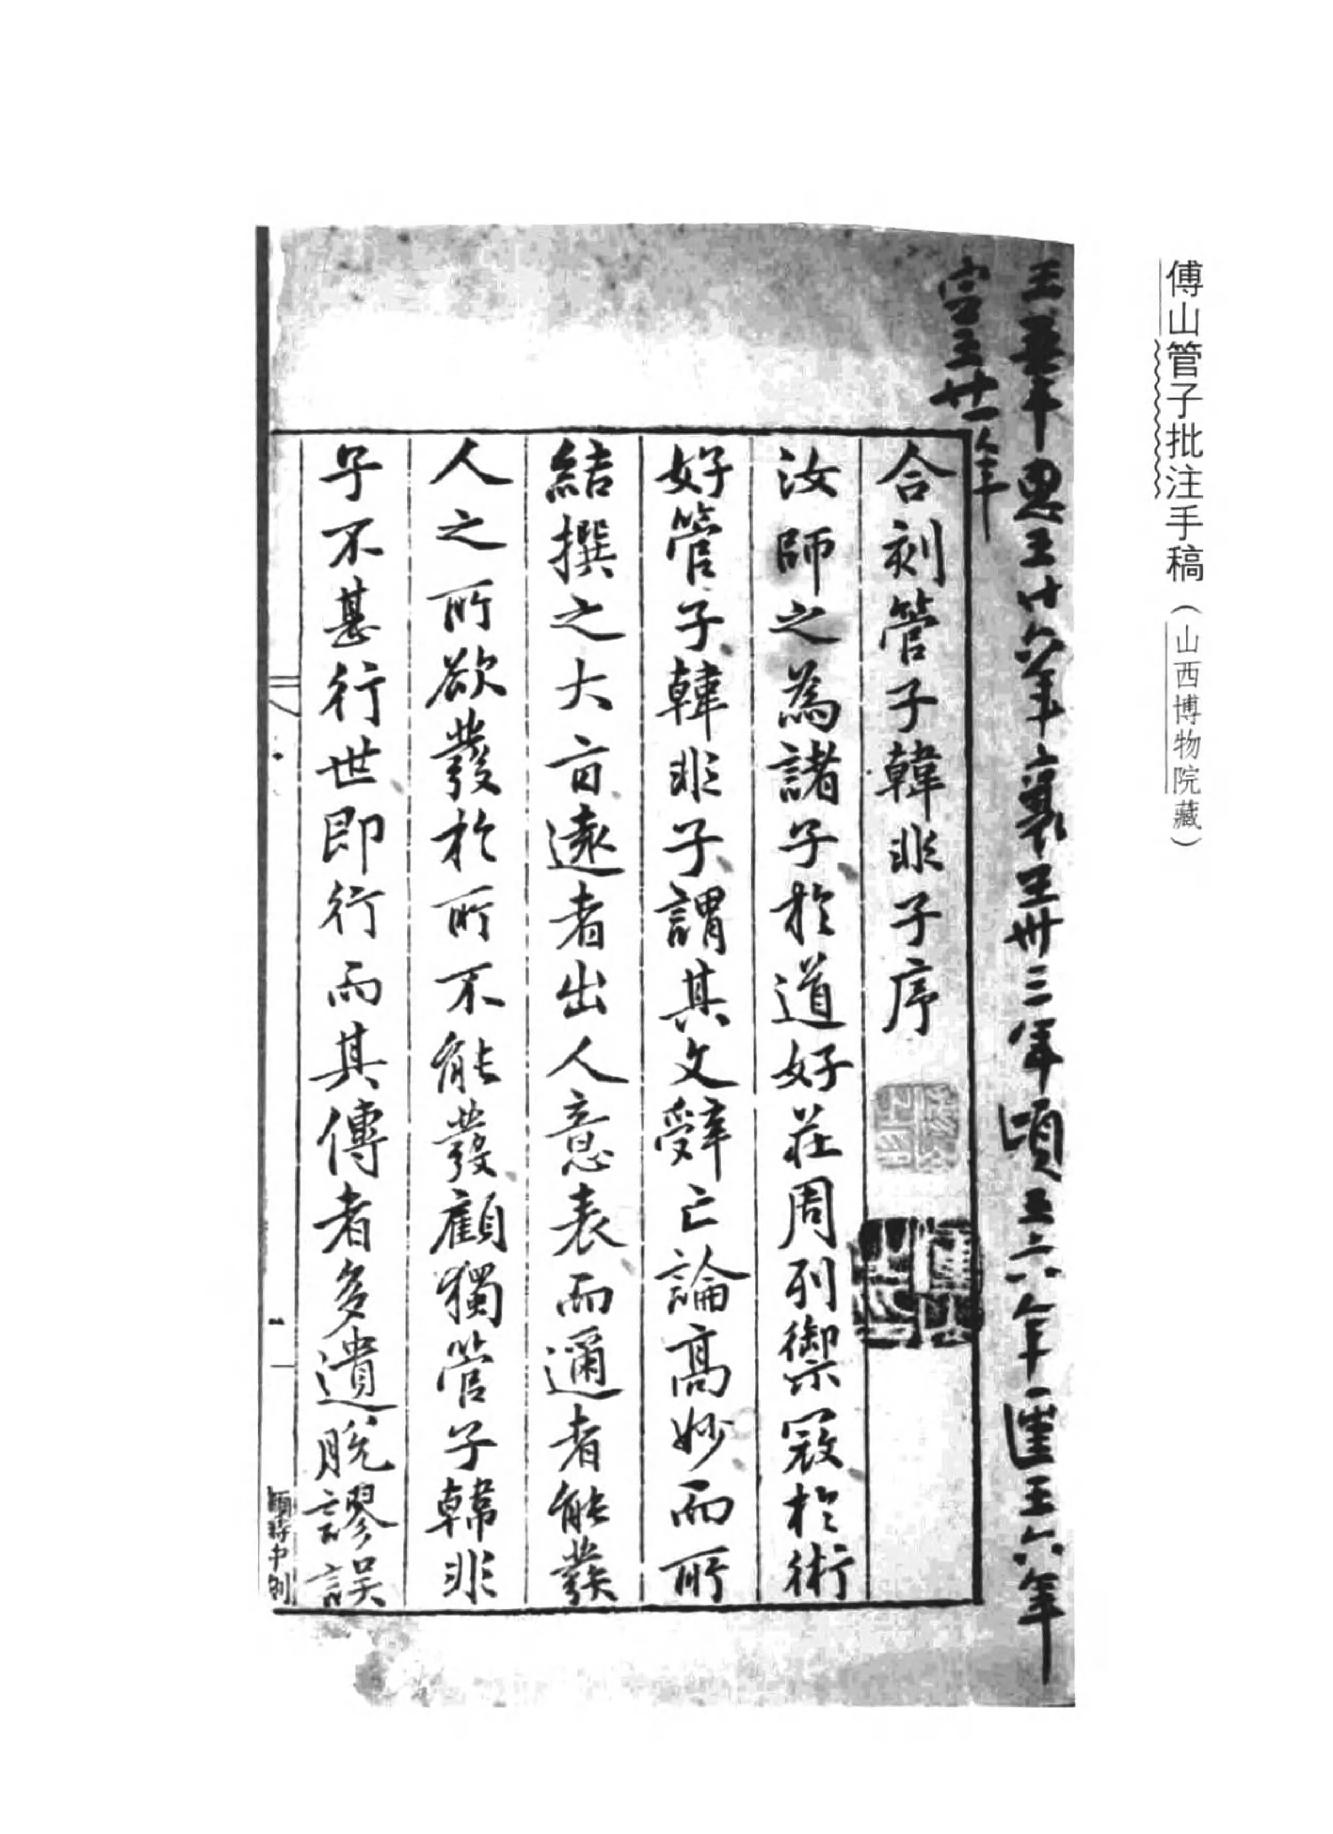 傅山管子批注手稿（山西博物院藏）
惠王廿六年襄王卅三年頃王六年匡王六年
合刻管子韓非子序
汝師之為諸子於道好莊周列禦寇於術
好管子韓非子謂其文辭亡論髙妙而所
結撰之大㫖遠者出人意表而邇者能發
人之所欲發於所不能發顧獨管子韓非
子不甚行世即行而其傳者多遺脫謬誤
一